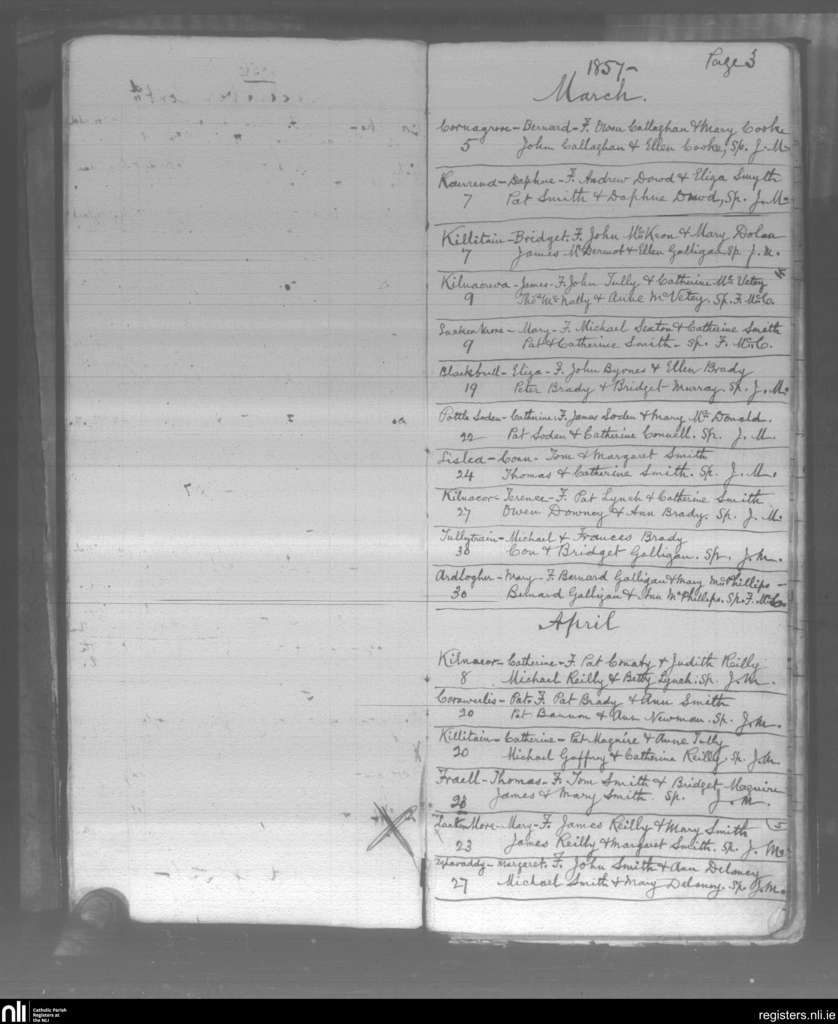 Page 3
1857-
March.
Cornagrow - Bernard - F. Owen Callaghan & Mary Cooke
5 John Callaghan & Ellen Cooke, Sp. J. M.
- Daphne - F. Andrew Dowd & Eliza Smyth
7 Pat Smith & Daphne Dowd, Sp. J. M.
Killitain - Bridget. F. John McKeon & Mary Dolan
7 James McDermot & Ellen Galligan Sp J. M.
Kilnacreva - James - F. John Tully & Catherine McVetey
9 Thos McNally & Anne McVetey. Sp. F. McC.
- Mary - F. Michael Sexton & Catherine Smith
9 Pat & Catherine Smith - Sp. F. McC.
Blackbull - Eliza - F. John Byrnes & Ellen Brady
19 Peter Brady & Bridget Murray. Sp. J. M.
Pottle Soden - Catherine. F. James Soden & Mary McDonald.
22 Pat Soden & Catherine Connell. Sp. J. M.
Lislea - Conn - Tom & Margaret Smith
24 Thomas & Catherine Smith. Sp. J. M.
Kilnacor - Terence - F. Pat Lynch & Catherine Smith
27 Owen Downey & Ann Brady. Sp. J. M.
Tullytrain - Michael & Frances Brady
30 Con & Bridget Galligan. Sp. J. M.
Ardlogher - Mary - F. Bernard Galligan & Mary McPhillips -
30 Bernard Galligan & Ann McPhillips. Sp. F. McC.
April
Kilnacor - Catherine - F. Pat Conaty & Judith Reilly
8 Michael Reilly & Betty Lynch. Sp. J. M.
- Pat. F. Pat Brady & Ann Smith
20 Pat Bannon & Ann Newman. Sp. J. M.
Killitain - Catherine - Pat Maguire & Anne Tully
20 Michael Gaffney & Catherine Reilly. Sp. J. M
- Thomas - F. Tom Smith & Bridget Maguire
James & Mary Smith Sp. J. M.
More - Mary - F. James Reilly & Mary Smith
23 James Reilly & Margaret Smith. Sp. J. M.
- Margaret. F. John Smith & Ann Delaney
27 Michael Smith & Mary Delaney. Sp. J. M.
nli
Catholic Parish
Registers at
the NLI
registers.nli.ie